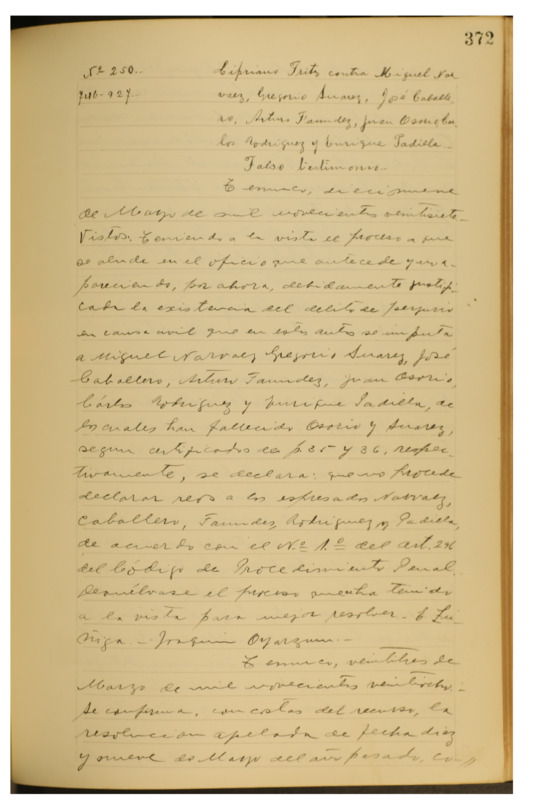 372
Nº 250..
Cipriano Fritz contra Miguel Nar
vaez, Gregorio Suarez, José Caballe
ro, Arturo Faundez, Juan Osorio, Car
los Rodriguez y Enrique Padilla.
Falso testimonio.
Temuco, diecinueve
de Marzo de mil novecientos veintisiete.
Vistos: Teniendo a la vista el proceso a que
se alude en el oficio que antecede y no a-
pareciendo, por ahora, debidamente justifi-
cada la existencia del delito de perjurio
en causa civil que en estos autos se imputa
a Miguel Narvaez, Gregorio Suarez, José
Caballero, Arturo Faundez, Juan Osorio,
Cárlos Rodriguez y Enrique Padilla, de
los cuales han fallecido Osorio y Suarez,
segun certificados de f 35 y 36, respec-
tivamente, se declara: que no procede
declarar reos a los espresados Narvaez,
Caballero, Faundez, Rodriguez y Padilla,
de acuerdo con el Nº 1º del art. 296
del Código de Procedimiento Penal.
Desuélvase el proceso que se ha tenido
a la vista para mejor resolver.
Joaquin Oyarzun.-
Temuco, veintitres de
Marzo de mil novecientos veintiocho.-
Se confirma, con costas del recurso, la
resolucion apelada de fecha diez
y nueve de Marzo del año pasado, co-